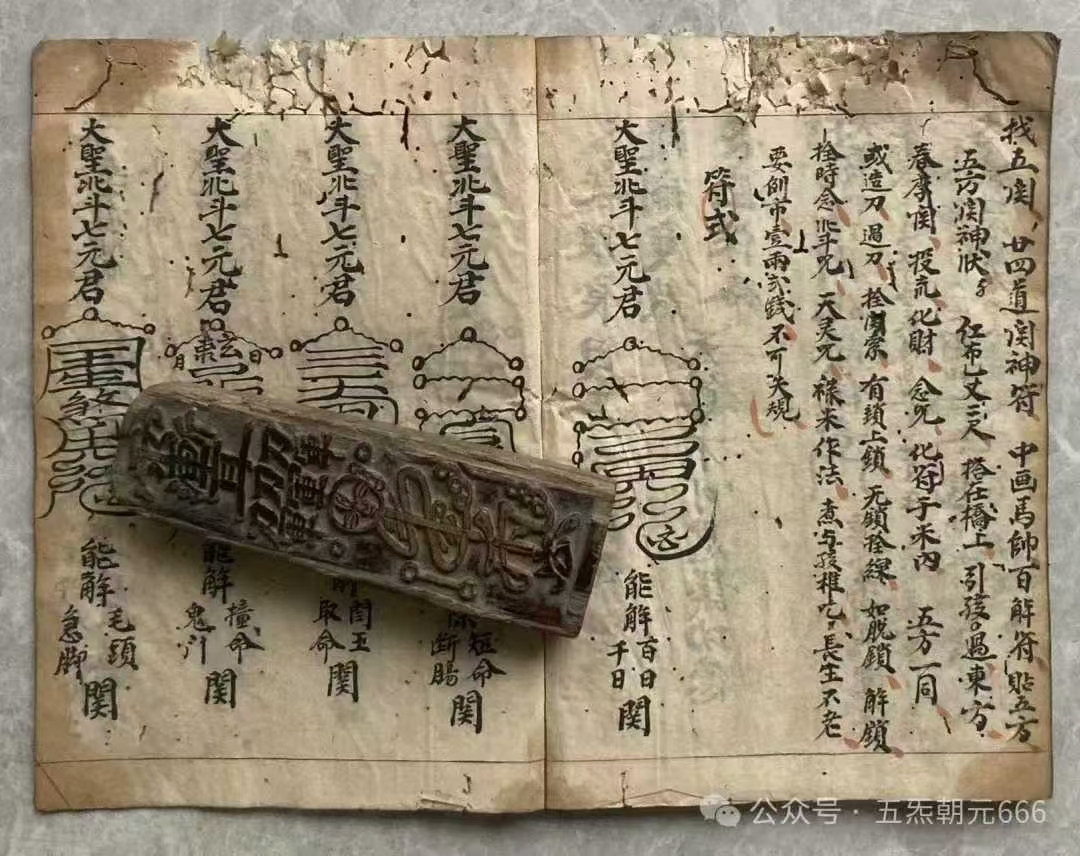 找五関、廿四道関神符 中画馬師百解符贴五方
五方関神狀 红布已丈二尺 搭仕橋上 引孩過東方
春摩関、投流化財、念咒、化符于米内 五方一同
或造刀過刀 拴関索 有鎖上鎖 无鎖拴線 如脱鎖、解鎖
拴時念北斗咒 天灵元 禄米作法 煮与孩稚吃 長生不老
要側布壹両弍錢 不可失規
符式
大聖北斗七元君 能解百日千日関
大聖北斗七元君 短命断腸関
大聖北斗七元君 閆王取命関
大聖北斗七元君 能解撞命鬼门関
大聖北斗七元君 能解毛頭急脚関
公众号·五炁朝元666